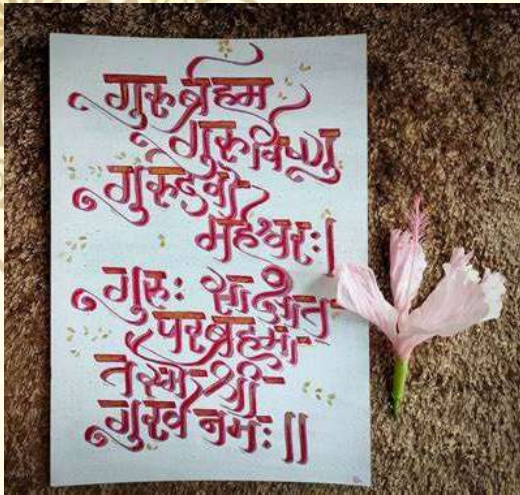 गुरुर्ब्रह्म
गुरुर्विष्णु
गुरुर्देवो
महेश्वरः।
गुरुः साक्षात
परब्रह्मा
तस्मै श्री
गुरवे नमः॥